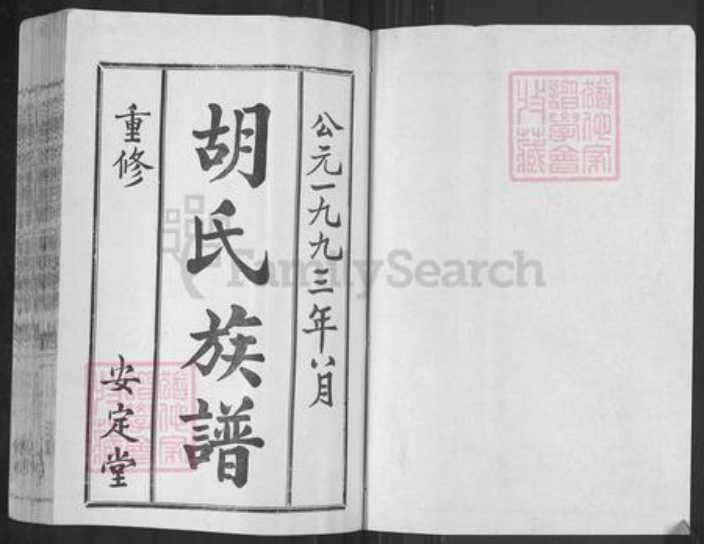 公元一九九三年八月
胡氏族譜
重修
安定堂
FamilySearch
猶他家
譜學會
收藏
猶他家
譜學會
收藏